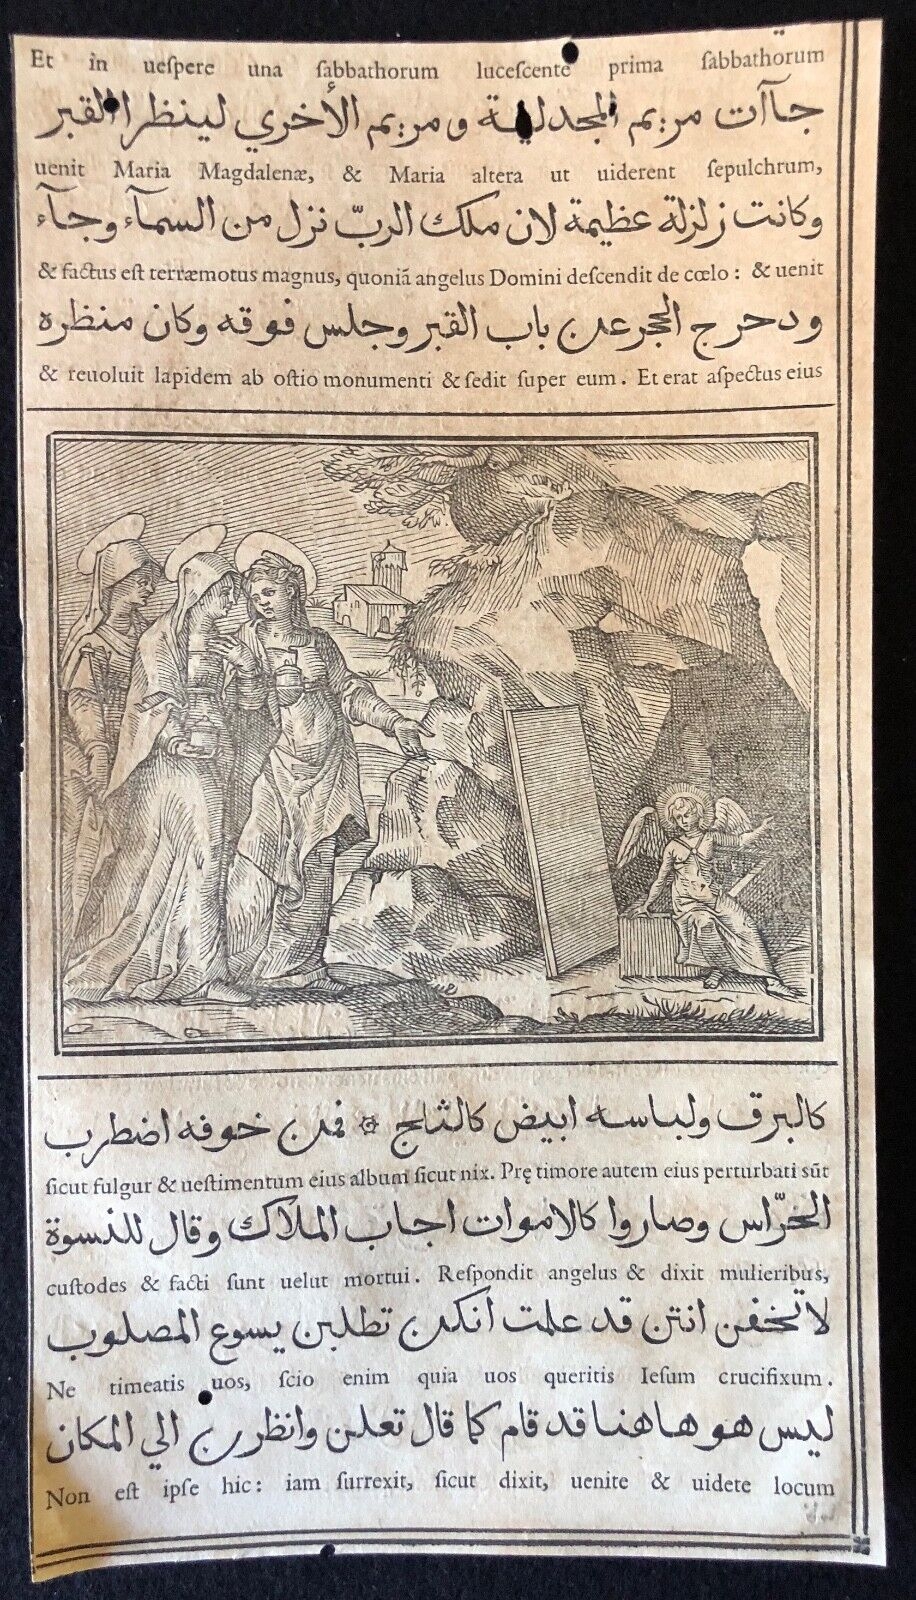 Et in ueſpere una ſabbathorum luceſcente prima ſabbathorum
جاآت مريم المجدلية ومريم الأخري لينظرا القبر
uenit Maria Magdalenæ, & Maria altera ut uiderent ſepulchrum,
وكانت زلزلة عظيمة لان ملك الربّ نزل من السمآء وجآء
& factus eſt terræmotus magnus, quoniã angelus Domini deſcendit de cœlo : & uenit
ودحرج الحجر عن باب القبر وجلس فوقه وكان منظره
& reuoluit lapidem ab oſtio monumenti & ſedit ſuper eum . Et erat aſpectus eius
كالبرق ولباسه ابيض كالثلج ۞ فمن خوفه اضطرب
ſicut fulgur & ueſtimentum eius album ſicut nix. Prę timore autem eius perturbati sũt
الحرّاس وصاروا كالاموات اجاب الملاك وقال للنسوة
cuſtodes & facti ſunt uelut mortui . Reſpondit angelus & dixit mulieribus,
لا تخفن انتن قد علمت انكن تطلبن يسوع المصلوب
Ne timeatis uos, ſcio enim quia uos queritis Ieſum crucifixum .
ليس هو هاهنا قد قام كما قال تعلن وانظرن الي المكان
Non eſt ipſe hic : iam ſurrexit, ſicut dixit, uenite & uidete locum